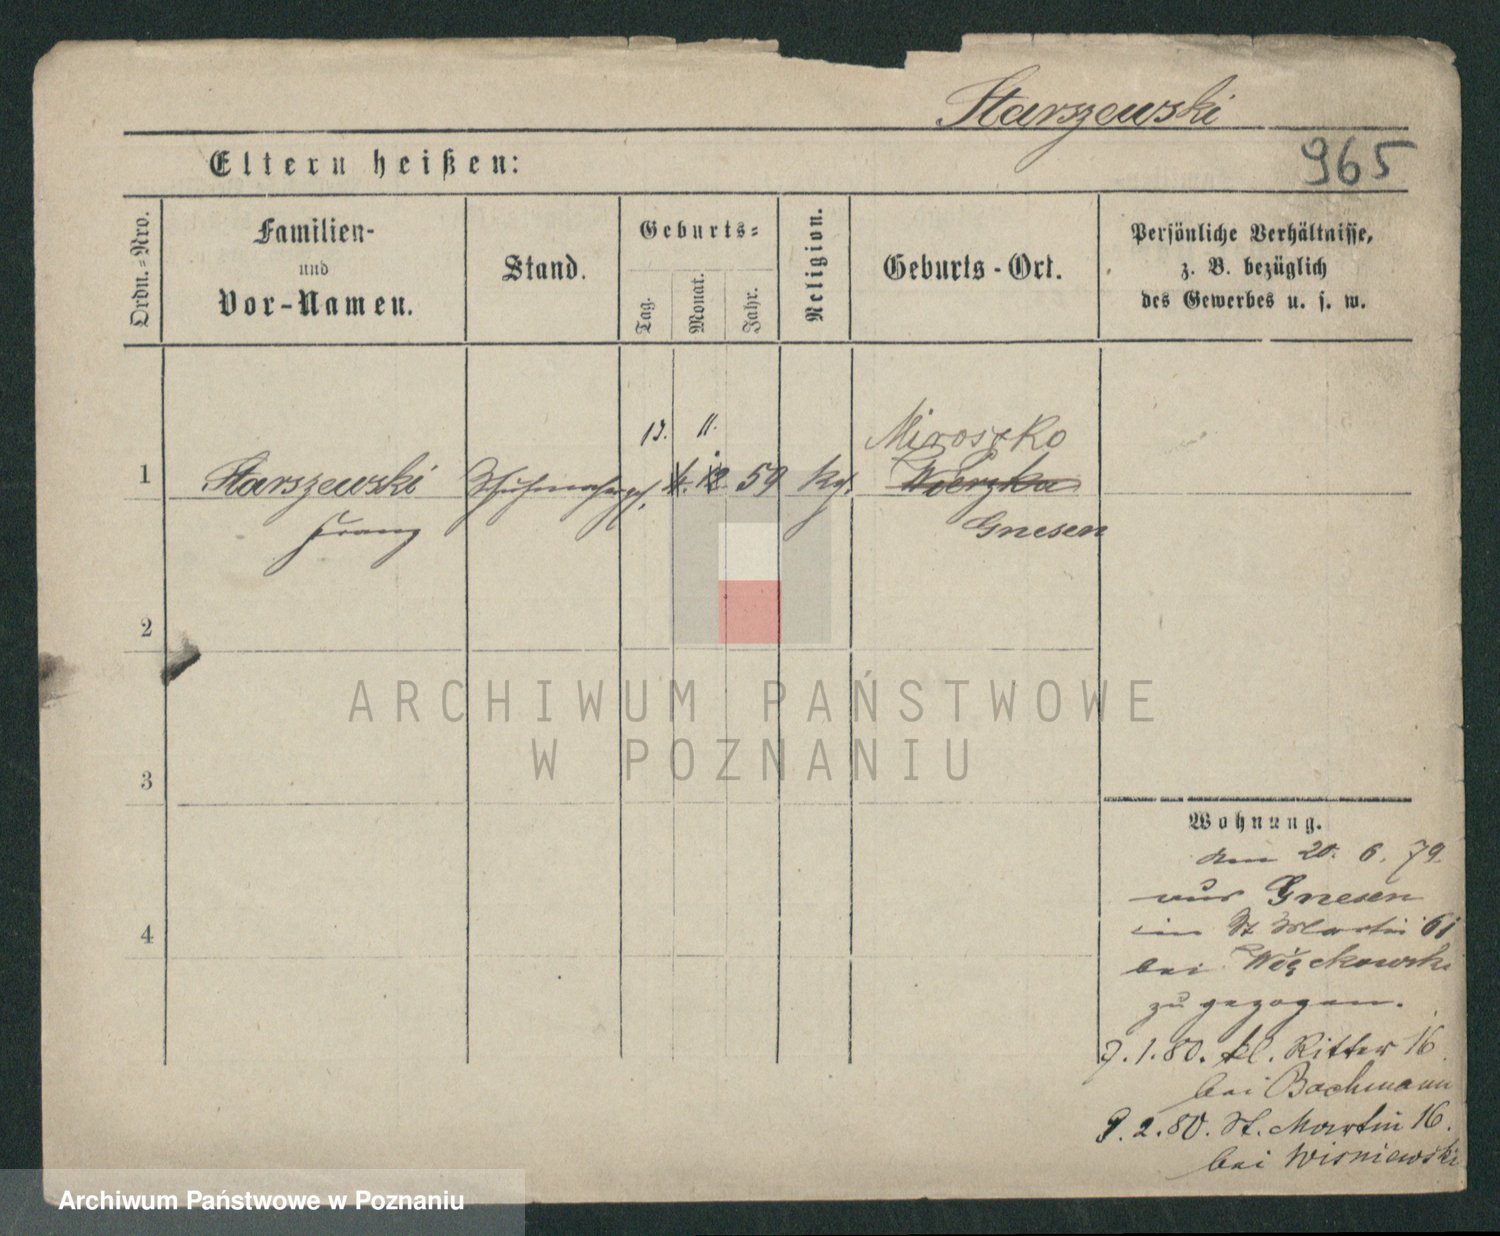 Starszewski
965
Eltern heißen:
Ordn.-Nro.
Familien-
und
Vor-Namen.
Stand.
Geburts-
Tag.
Monat.
Jahr.
Religion.
Geburts-Ort.
Persönliche Verhältnisse,
z. B. bezüglich
des Gewerbes u. s. w.
11.
Miroszko
1
Starszewski
59
Franz
Gnesen
2
3
4
ARCHIWUM PAŃSTWOWE
W POZNANIU
Wohnung.
am 20. 6. 79.
aus Gnesen
St Martin 61
bei Więckowski
zu gezogen.
7.1.80. kl. Ritter 16
bei Bachmann
9.2.80. St. Martin 16.
bei Wisniewski
Archiwum Państwowe w Poznaniu